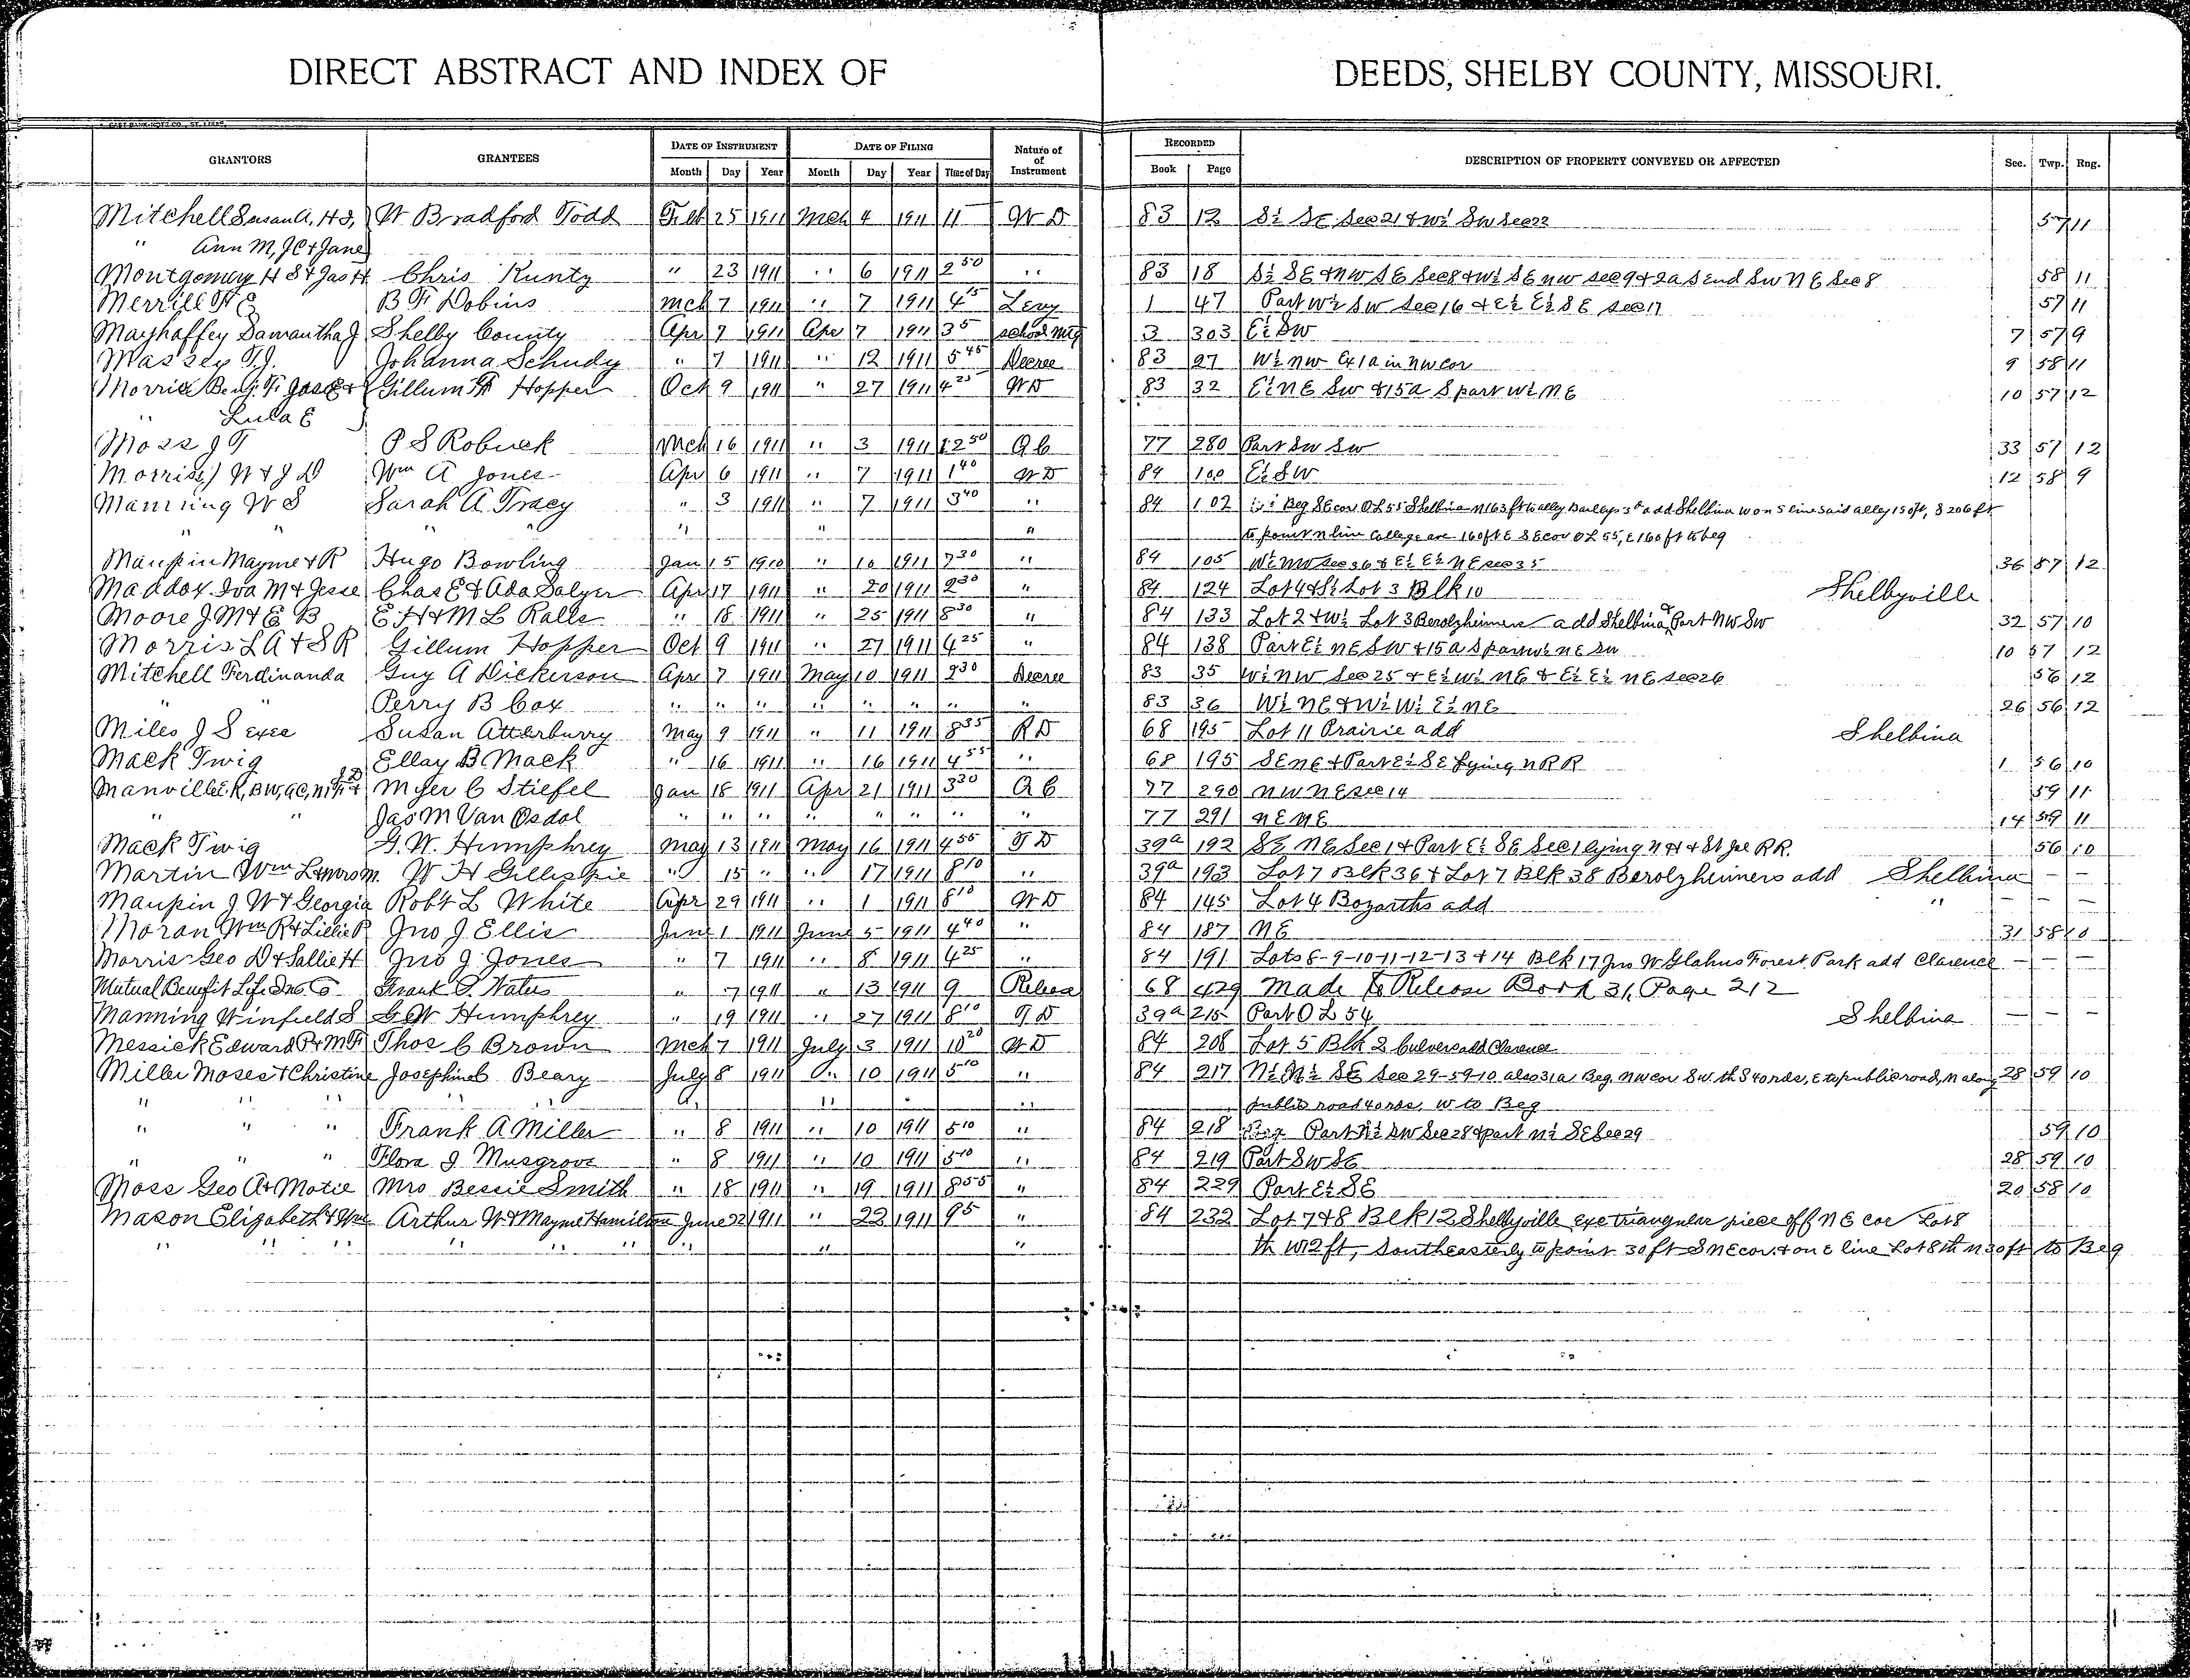 DIRECT ABSTRACT AND INDEX OF DEEDS, SHELBY COUNTY, MISSOURI.
GRANTORS GRANTEES DATE OF INSTRUMENT DATE OF FILING Nature of RECORDED DESCRIPTION OF PROPERTY CONVEYED OR AFFECTED Sec. Twp. Rng.
of
Month Day Year Month Day Year Time of Day Instrument Book Page
Mitchell Susan A, H S, W Bradford Todd Feb 25 1911 Mch 4 1911 11 W D 83 12 S½ SE Sec 21 & W½ SW Sec 22 57 11
" Ann M, J C & Jane
Montgomery H S & Jas H Chris Kuntz " 23 1911 " 6 1911 2 50 " 83 18 S½ SE & NW SE Sec 8 & W½ SE NW Sec 9 & 2a S End SW NE Sec 8 58 11
Merrill B F Dobins Mch 7 1911 " 7 1911 4 15 Levy 1 47 Part W½ SW Sec 16 & E½ E½ SE Sec 17 57 11
Mayhaffey Samantha J Shelby County Apr 7 1911 Apr 7 1911 3 5 School Mtg 3 303 E½ SW 7 57 9
Massey T J. Johanna Schudy " 7 1911 " 12 1911 5 45 Decree 83 27 W½ NW Ex 1a in NW cor 9 58 11
Morris Benj. F. & Gillum Hopper Oct 9 1911 " 27 1911 4 25 W D 83 32 E½ NE SW & 15a S part W½ NE 10 57 12
" Lula E
Moss J T P S Robuck Mch 16 1911 " 3 1911 12 50 Q C 77 280 Part SW SW 33 57 12
W & J D Wm A Jones Apr 6 1911 " 7 1911 1 40 W D 84 100 E½ SW 12 58 9
Manning W S Sarah A Tracy " 3 1911 " 7 1911 3 40 " 84 102 Beg SE cor OL 55 Shelbina N 163 ft to alley add Shelbina W on S line said alley 150 ft, S 206 ft
" " " " " " " to point N line College ave 160 ft E SE cor OL 55, E 160 ft to beg
Maupin Mayme & R Hugo Bowling Jan 5 1910 " 10 1911 7 30 " 84 105 W½ NW Sec 36 & E½ E½ NE Sec 35 36 57 12
Maddox Iva M & Jesse Chas E & Ada Salyer Apr 17 1911 " 20 1911 9 30 " 84 124 Lot 4 & S½ Lot 3 Blk 10 Shelbyville
Moore J M & E B E H & M L Ralls " 18 1911 " 25 1911 8 30 " 84 133 Lot 2 & W½ Lot 3 Berolzheimers add Shelbina & Part NW SW 32 57 10
Morris L A & S R Gillum Hopper Oct 9 1911 " 27 1911 4 25 " 84 138 Part E½ NE SW & 15a S part W½ NE SW 10 57 12
Mitchell Ferdinanda Guy A Dickerson Apr 7 1911 May 10 1911 9 30 Decree 83 35 W½ NW Sec 25 & E½ W½ NE & E½ E½ NE Sec 26 56 12
" " Perry B Cox " " " " " " " " 83 36 W½ NE & W½ W½ E½ NE 26 56 12
Miles J S Exec Susan Atterburry May 9 1911 " 11 1911 8 35 R D 68 195 Lot 11 Prairie add Shelbina
Mack Twig Ellay B Mack " 16 1911 " 16 1911 4 55 " 68 195 SE NE & Part E½ SE lying N R R 1 56 10
Myer C Stiefel Jan 18 1911 Apr 21 1911 3 30 Q C 77 290 NW NE Sec 14 59 11
" " Jas M Van Osdol " " " " " " " 77 291 NE NE 14 59 11
Mack Twig G. W. Humphrey May 13 1911 May 16 1911 4 55 T D 39a 192 SE NE Sec 1 & Part E½ SE Sec 1 lying N H & St Joe RR. 56 10
Martin Wm L & Mrs M. W H Gillespie " 15 " " 17 1911 8 10 " 39a 193 Lot 7 Blk 36 & Lot 7 Blk 38 Berolzheimers add Shelbina – –
Maupin J W & Georgia Robt L White Apr 29 1911 " 1 1911 8 10 W D 84 145 Lot 4 Bozarths add " – – –
Moran Wm R & Lillie R Jno J Ellis June 1 1911 June 5 1911 4 40 " 84 187 NE 31 58 10
Morris Geo D & Sallie H Jno J Jones " 7 1911 " 8 1911 4 25 " 84 191 Lots 8-9-10-11-12-13 & 14 Blk 17 Jno W Glahns Forest Park add Clarence – – –
Mutual Benefit Life Ins. Co Frank Waters " 7 1911 " 13 1911 9 Release 68 429 Made to Release Book 31, Page 212
Manning Winfield S G W Humphrey " 19 1911 " 27 1911 8 10 T D 39a 215 Part OL 54 Shelbina – – –
Messick Edward P & M F Thos C Brown Mch 7 1911 July 3 1911 10 20 W D 84 208 Lot 5 Blk 2 Culvers add Clarence
Miller Moses & Christine Josephine Beary July 8 1911 " 10 1911 5 10 " 84 217 N½ N½ SE Sec 29-59-10 also 31a Beg. NW cor SW th S 40 rds, E to public road, N along 28 59 10
" " " " " " " " public road 40 rds, W to Beg
" " " Frank A Miller " 8 1911 " 10 1911 5 10 " 84 218 Part N½ SW Sec 28 & part N½ SE Sec 29 59 10
" " " Flora J Musgrove " 8 1911 " 10 1911 5 10 " 84 219 Part SW SE 28 59 10
Moss Geo A & Motie Mrs Bessie Smith " 18 1911 " 19 1911 8 55 " 84 229 Part E½ SE 20 58 10
Mason Elizabeth & Wm Arthur W & Mayme Hamilton June 22 1911 " 22 1911 9 5 " 84 232 Lot 7 & 8 Blk 12 Shelbyville exc triangular piece off NE cor Lot 8
" " " " " " " " " th W 12 ft, Southeasterly to point 30 ft S NE cor. & on E line Lot 8 th N 30 ft to Beg